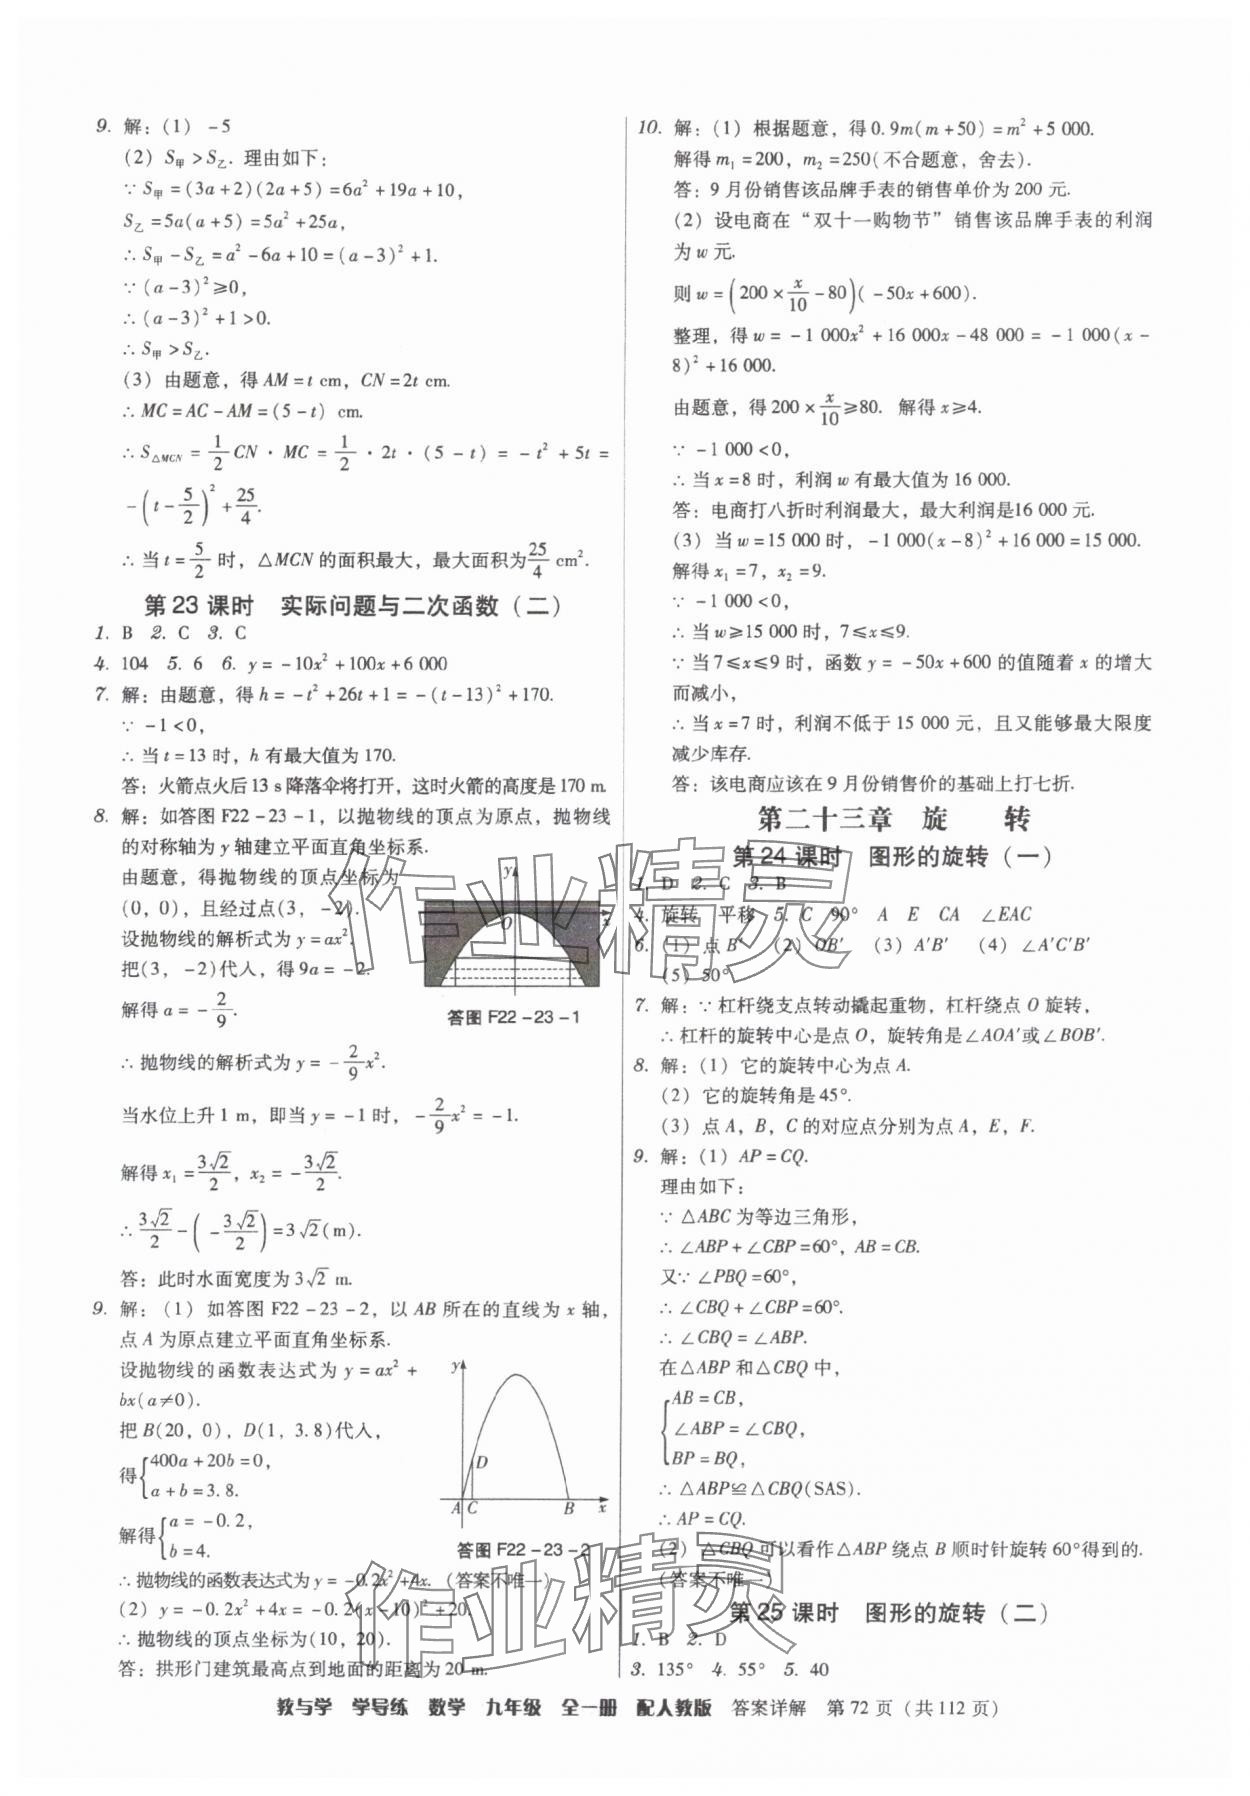 9. 解：(1) -5
(2) S甲 > S乙. 理由如下：
∵ S甲 = (3a+2)(2a+5) = 6a² + 19a + 10,
S乙 = 5a(a+5) = 5a² + 25a,
∴ S甲 - S乙 = a² - 6a + 10 = (a-3)² + 1.
∵ (a-3)² ≥ 0,
∴ (a-3)² + 1 > 0.
∴ S甲 > S乙.
(3) 由题意，得 AM = t cm, CN = 2t cm.
∴ MC = AC - AM = (5-t) cm.
∴ S△MCN = 1/2 CN · MC = 1/2 · 2t · (5-t) = -t² + 5t =
-(t - 5/2)² + 25/4.
∴ 当 t = 5/2 时，△MCN 的面积最大，最大面积为 25/4 cm².
第 23 课时　实际问题与二次函数（二）
1. B 2. C 3. C
4. 104 5. 6 6. y = -10x² + 100x + 6 000
7. 解：由题意，得 h = -t² + 26t + 1 = -(t-13)² + 170.
∵ -1 < 0,
∴ 当 t = 13 时，h 有最大值为 170.
答：火箭点火后 13 s 降落伞将打开，这时火箭的高度是 170 m.
8. 解：如答图 F22-23-1，以抛物线的顶点为原点，抛物线
的对称轴为 y 轴建立平面直角坐标系.
由题意，得抛物线的顶点坐标为
(0, 0)，且经过点(3, -2).
设抛物线的解析式为 y = ax².
把(3, -2)代人，得 9a = -2.
解得 a = -2/9.
y
O
x
答图 F22-23-1
∴ 抛物线的解析式为 y = -2/9 x².
当水位上升 1 m，即当 y = -1 时，-2/9 x² = -1.
解得 x₁ = 3√2/2, x₂ = -3√2/2.
∴ 3√2/2 - (-3√2/2) = 3√2(m).
答：此时水面宽度为 3√2 m.
9. 解：(1) 如答图 F22-23-2，以 AB 所在的直线为 x 轴，
点 A 为原点建立平面直角坐标系.
设抛物线的函数表达式为 y = ax² +
bx(a≠0).
把 B(20, 0), D(1, 3.8)代人，
得{400a + 20b = 0,
a + b = 3.8.
解得{a = -0.2,
b = 4.
y
D
A C B x
答图 F22-23-2
∴ 抛物线的函数表达式为 y = -0.2x² + 4x.（答案不唯一）
(2) y = -0.2x² + 4x = -0.2(x-10)² + 20.
∴ 抛物线的顶点坐标为(10, 20).
答：拱形门建筑最高点到地面的距离为 20 m.
10. 解：(1) 根据题意，得 0.9m(m+50) = m² + 5 000.
解得 m₁ = 200, m₂ = 250(不合题意，舍去).
答：9 月份销售该品牌手表的销售单价为 200 元.
(2) 设电商在“双十一购物节”销售该品牌手表的利润
为 w 元.
则 w = (200 × x/10 - 80)(-50x + 600).
整理，得 w = -1 000x² + 16 000x - 48 000 = -1 000(x -
8)² + 16 000.
由题意，得 200 × x/10 ≥ 80. 解得 x ≥ 4.
∵ -1 000 < 0,
∴ 当 x = 8 时，利润 w 有最大值为 16 000.
答：电商打八折时利润最大，最大利润是16 000 元.
(3) 当 w = 15 000 时，-1 000(x-8)² + 16 000 = 15 000.
解得 x₁ = 7, x₂ = 9.
∵ -1 000 < 0,
∴ 当 w ≥ 15 000 时，7 ≤ x ≤ 9.
∵ 当 7 ≤ x ≤ 9 时，函数 y = -50x + 600 的值随着 x 的增大
而减小，
∴ 当 x = 7 时，利润不低于 15 000 元，且又能够最大限度
减少库存.
答：该电商应该在 9 月份销售价的基础上打七折.
第二十三章　旋　转
第 24 课时　图形的旋转（一）
1. D 2. C 3. B
4. 旋转　平移 5. C 90° A E CA ∠EAC
6. (1) 点 B′ (2) OB′ (3) A′B′ (4) ∠A′C′B′
(5) 50°
7. 解：∵ 杠杆绕支点转动撬起重物，杠杆绕点 O 旋转，
∴ 杠杆的旋转中心是点 O，旋转角是∠AOA′或∠BOB′.
8. 解：(1) 它的旋转中心为点 A.
(2) 它的旋转角是 45°.
(3) 点 A, B, C 的对应点分别为点 A, E, F.
9. 解：(1) AP = CQ.
理由如下：
∵ △ABC 为等边三角形，
∴ ∠ABP + ∠CBP = 60°, AB = CB.
又∵ ∠PBQ = 60°,
∴ ∠CBQ + ∠CBP = 60°.
∴ ∠CBQ = ∠ABP.
在△ABP 和△CBQ 中，
{AB = CB,
∠ABP = ∠CBQ,
BP = BQ,
∴ △ABP≌△CBQ(SAS).
∴ AP = CQ.
(2) △CBQ 可以看作△ABP 绕点 B 顺时针旋转 60°得到的.
（答案不唯一）
第 25 课时　图形的旋转（二）
1. B 2. D
3. 135° 4. 55° 5. 40
教与学　学导练　数学　九年级　全一册　配人教版　答案详解　第 72 页（共 112 页）
作业精灵
作业精灵